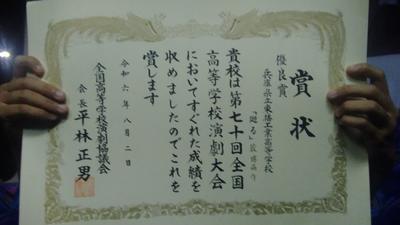 賞状
優良賞
兵庫県立東播工業高等学校
貴校は第七十回全国
高等学校演劇大会
においてすぐれた成績を
収めましたのでこれを
賞します
令和六年八月二日
全国高等学校演劇協議会
会長 平林正男